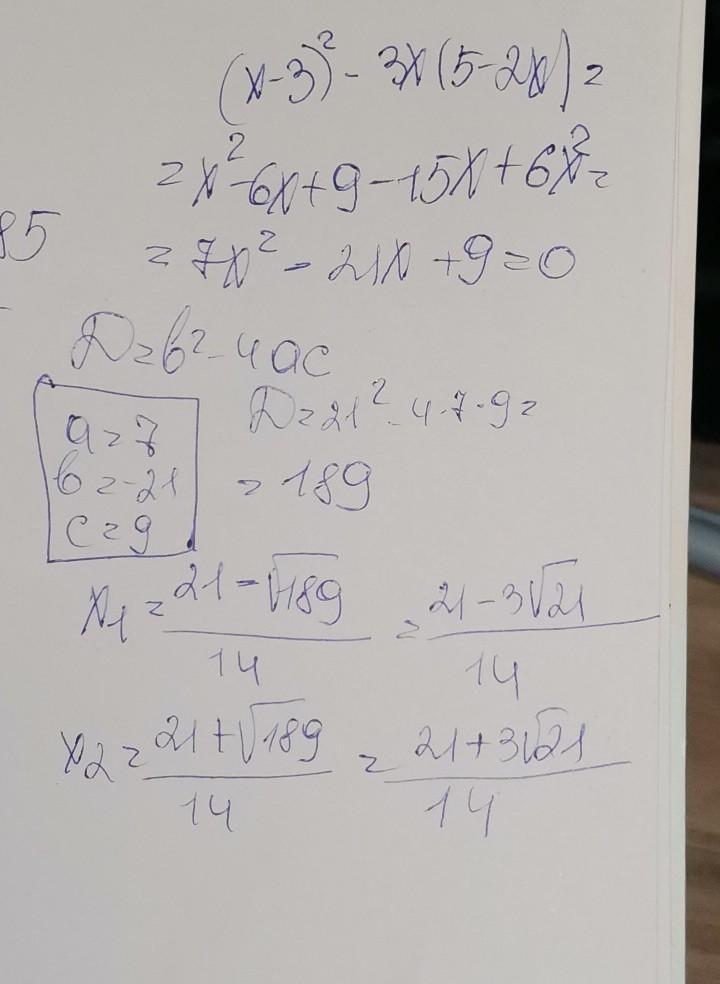 (x-3)² - 3x(5-2x) =
= x² - 6x + 9 - 15x + 6x² =
85
= 7x² - 21x + 9 = 0
D = b² - 4ac
a = 7
D = 21² - 4·7·9 =
b = -21
= 189
c = 9
x₁ = (21 - √189)/14 = (21 - 3√21)/14
x₂ = (21 + √189)/14 = (21 + 3√21)/14